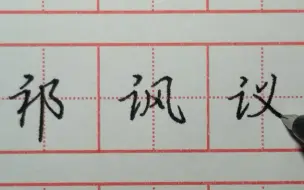 祁讽议